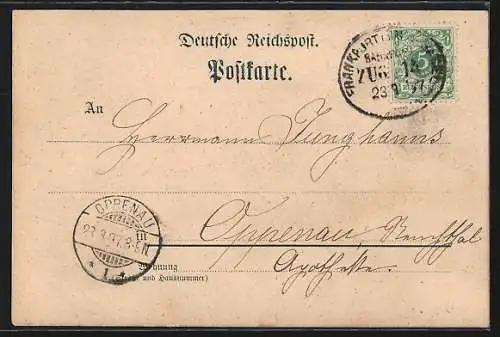 Deutsche Reichspost.
Postkarte.
FRANKFURT
ZUG
23 9 97
5
An
Herrmann Junghanns
Oppenau, Renchthal
Apotheke.
OPPENAU
23.9.97.
* 1. *
Wohnung
und Hausnummer)